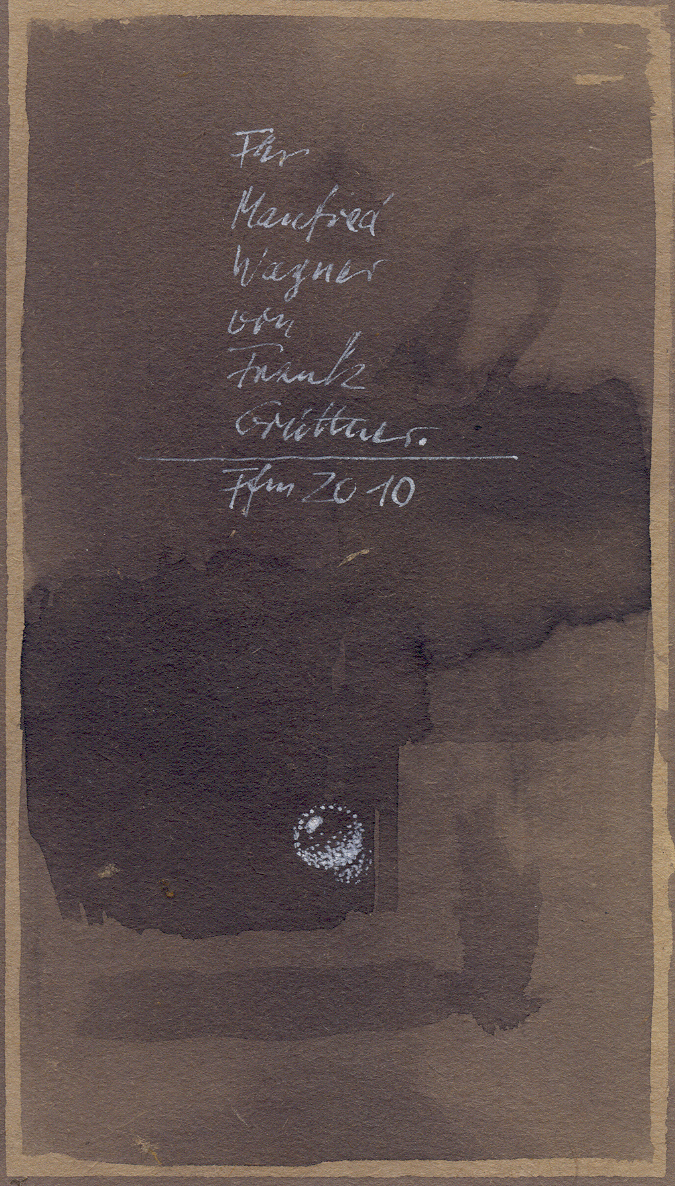 Für
Manfred
Wagner
von
Frank
Grüttner.
Ffm 2010